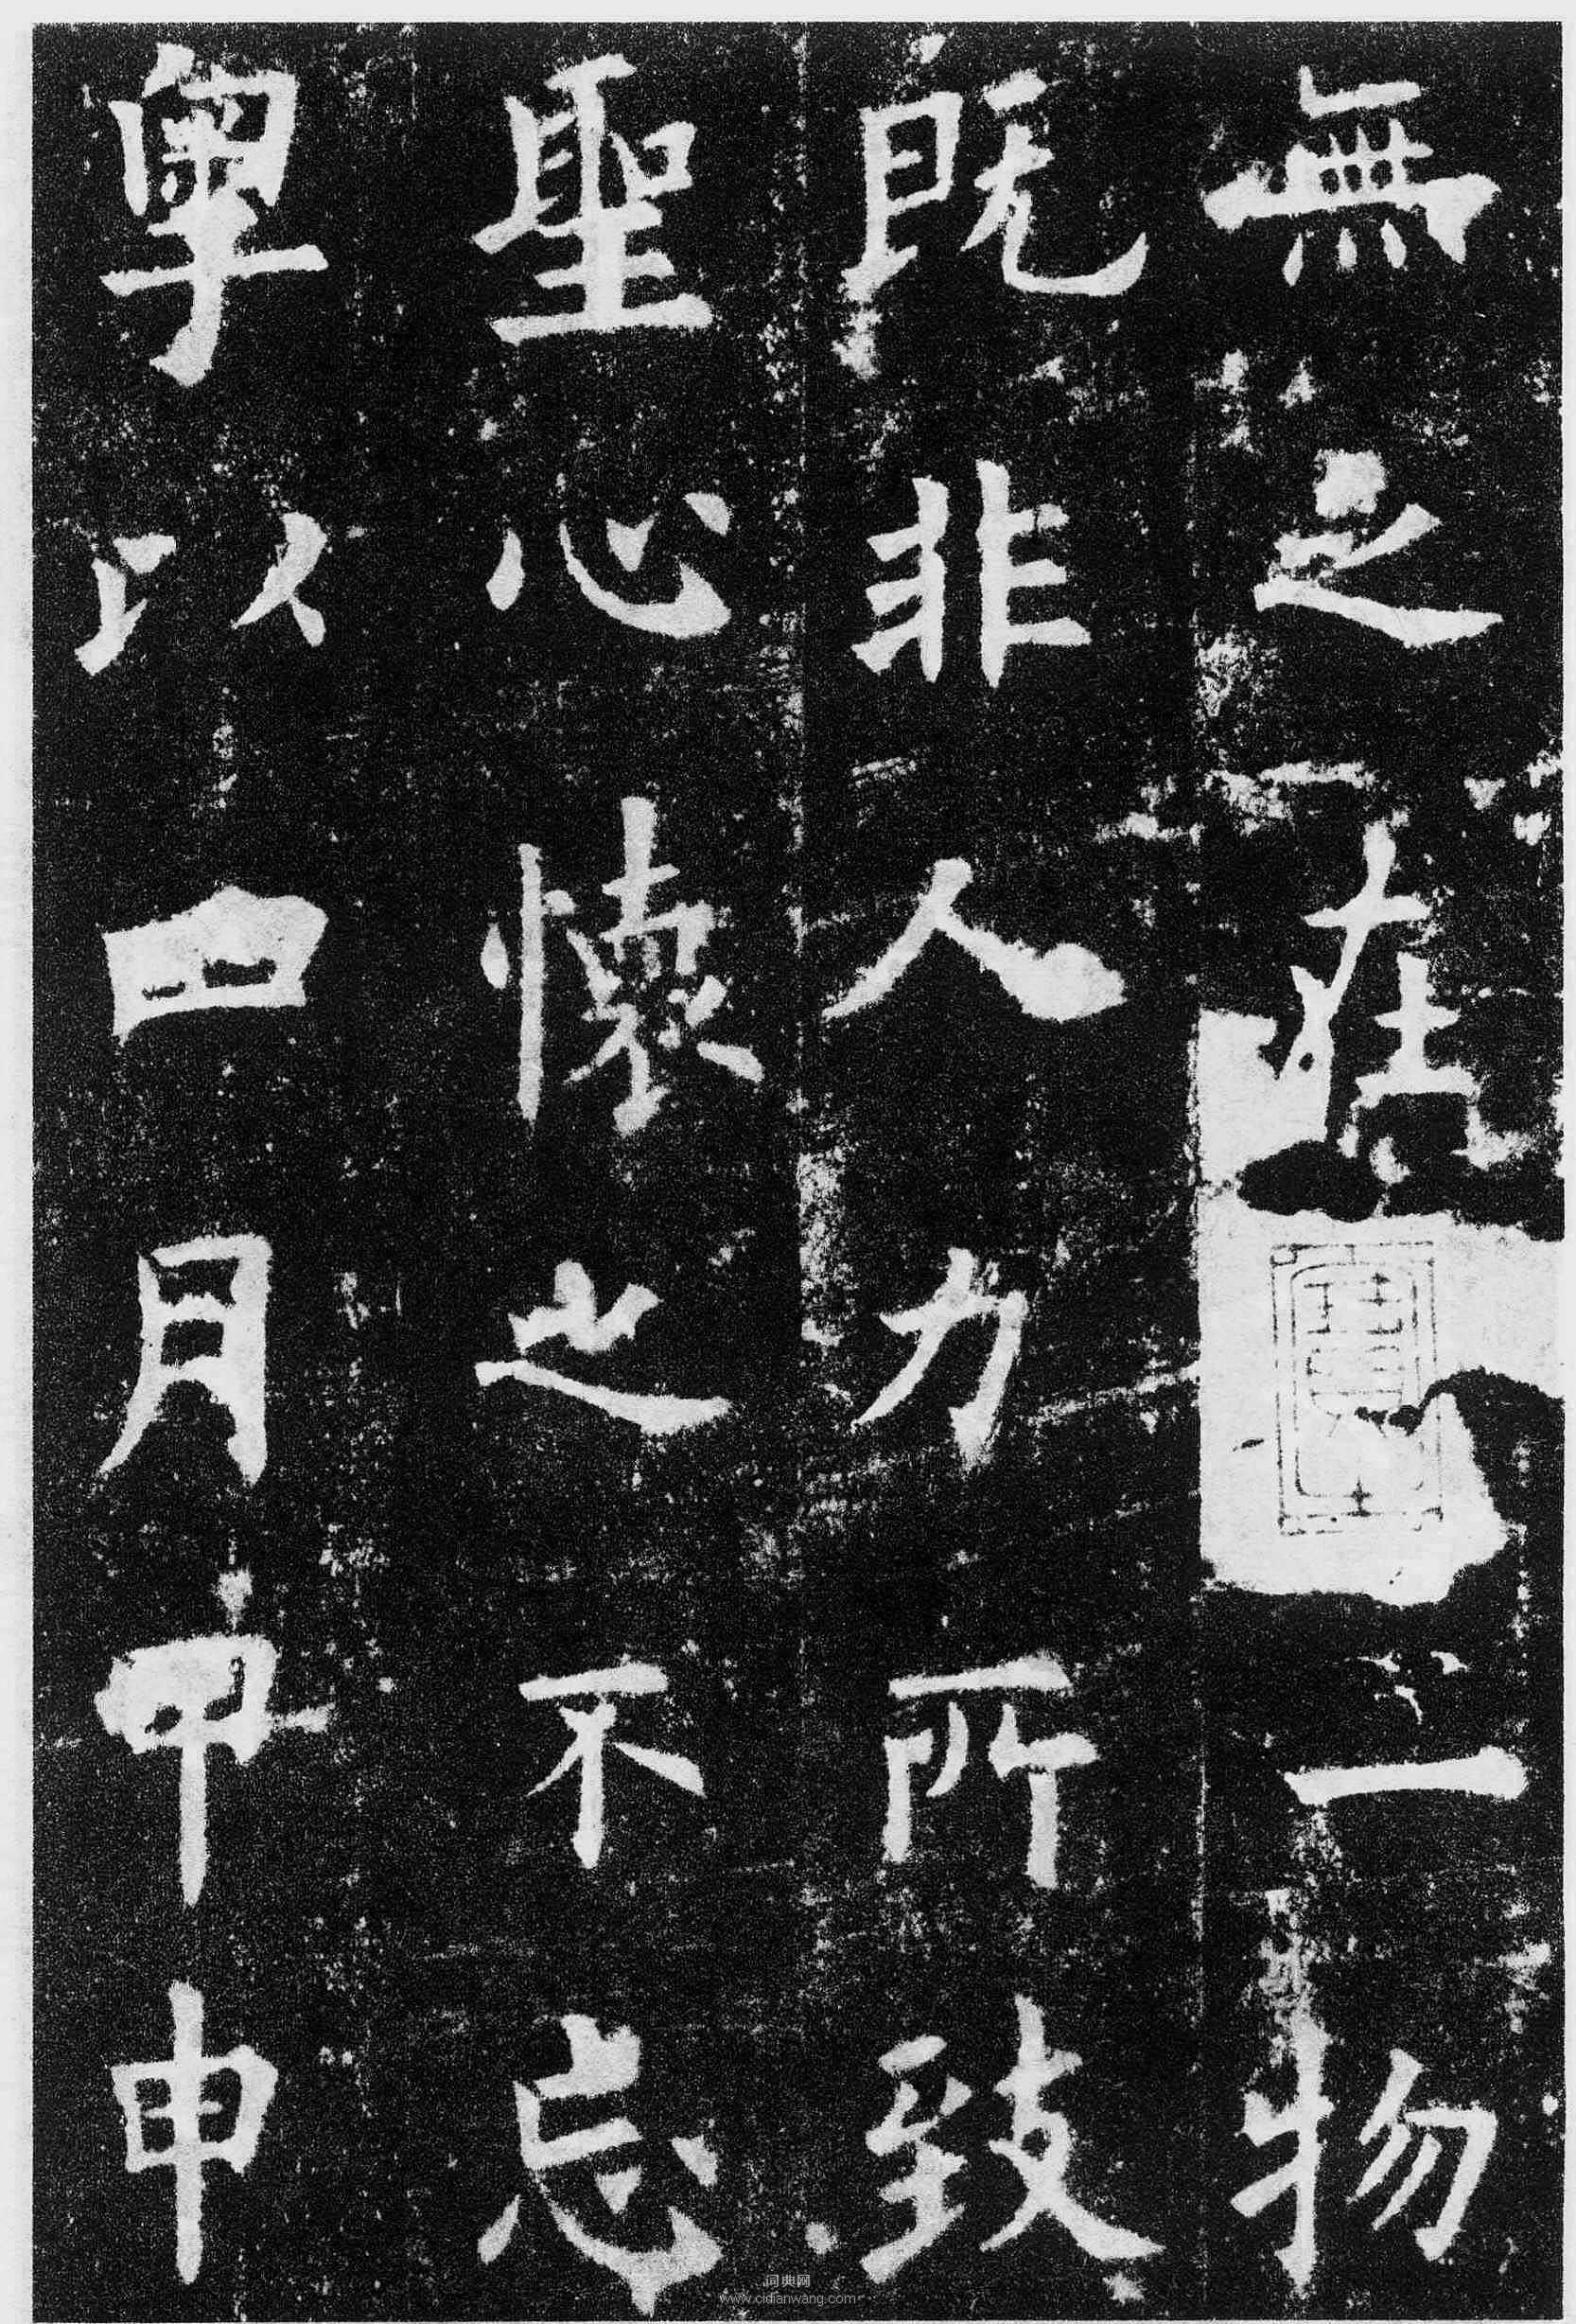 無之在一物
既非人力所致
聖心懷之不忘
粤以四月甲申
词典网
www.cidianwang.com